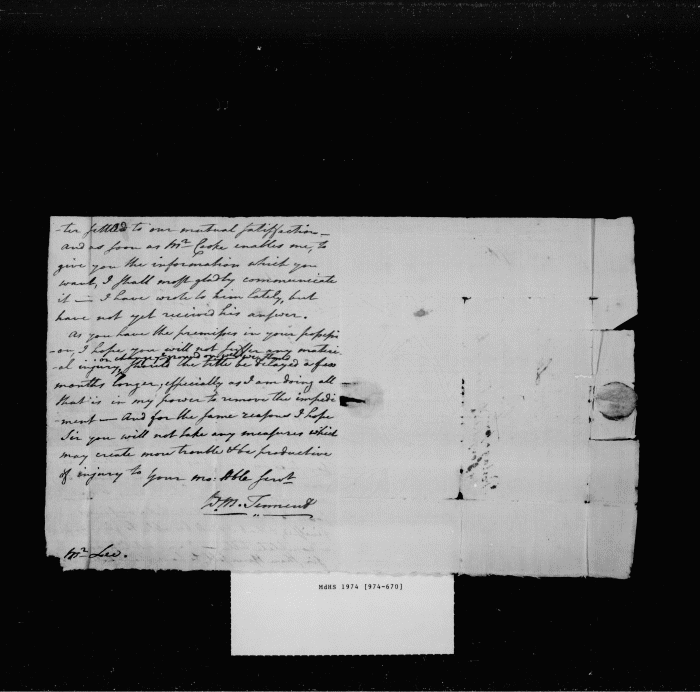 -ter settled to our mutual satisfaction —
And as soon as Mr. Cooke enables me, to
give you the information which you
want, I shall most gladly communicate
it — I have wrote to him lately, but
have not yet received his answer.
As you have the premisses in your possessi
-on, I hope you will not suffer any materi-
-al injury, should the title be delayed a few
months longer, especially as I am doing all
that is in my power to remove the impedi
-ment — And for the same reasons I hope
Sir you will not take any measures which
may create more trouble & be productive
of injury to Your mo: Oble Servt
Tennent
Mr. Lee.
MdHS 1974 [974-670]